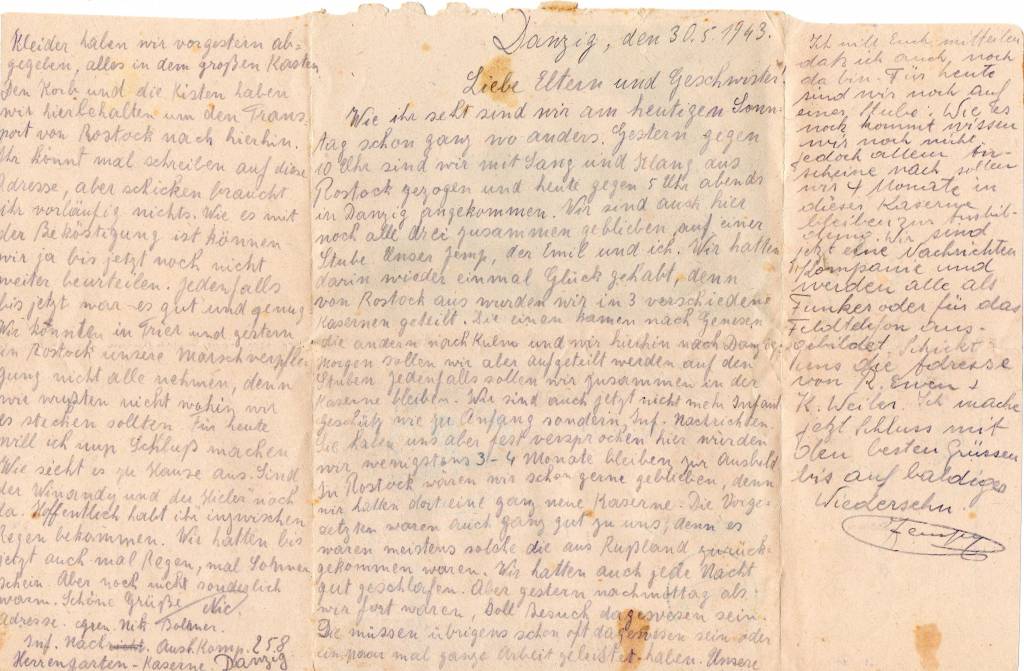 Danzig, den 30.5.1943.
Liebe Eltern und Geschwister!
Wie ihr seht sind wir am heutigen Sonn-
tag schon ganz wo anders. Gestern gegen
10 Uhr sind wir mit Sang und Klang aus
Rostock gezogen und heute gegen 5 Uhr abends
in Danzig angekommen. Wir sind auch hier
noch alle drei zusammen geblieben auf einer
Stube Unser Jemp, der Emil und ich. Wir hatten
darin wieder einmal Glück gehabt, denn
von Rostock aus wurden wir in 3 verschiedene
Kasernen geteilt. Die einen kamen nach
die andern nach Kulm und wir hierhin nach Danzig
Morgen sollen wir aber aufgeteilt werden auf den
Stuben Jedenfalls sollen wir zusammen in der
Kaserne bleiben. Wir sind auch jetzt nicht mehr Infant
Geschütz wie zu Anfang sondern, Inf. Nachrichten.
Sie haben uns aber fest versprochen hier würden
wir wenigstens 3-4 Monate bleiben zur Ausbild
In Rostock wären wir schon gerne geblieben, denn
wir hatten dort eine ganz neue Kaserne. Die Vorge-
setzten waren auch ganz gut zu uns, denn es
waren meistens solche die aus Rußland zurück-
gekommen waren. Wir hatten auch jede Nacht
gut geschlafen. Aber gestern nachmittag als
wir fort waren, soll Besuch dagewesen sein.
Die müssen übrigens schon oft dagewesen sein oder
ein paar mal ganze Arbeit geleistet haben. Unsere
Kleider haben wir vorgestern ab-
gegeben, alles in dem großen Kasten
Den Korb und die Kisten haben
wir hierbehalten um den Trans
port von Rostock nach hierhin.
Ihr könnt mal schreiben auf diese
Adresse, aber schicken braucht
ihr vorläufig nichts. Wie es mit
der Beköstigung ist können
wir ja bis jetzt noch nicht
weiter beurteilen. Jedenfalls
bis jetzt war es gut und genug
Wir konnten in Trier und gestern
in Rostock unsere Marschverpfle-
gung nicht alle nehmen, denn
wir wußten nicht wohin wir
es stecken sollten. Für heute
will ich nun Schluß machen
Wie sieht es zu Hause aus. Sind
der Winandy und der noch
da. Hoffentlich habt ihr inzwischen
Regen bekommen. Wir hatten bis
jetzt auch mal Regen, mal Sonnen
schein. Aber noch nicht sonderlich
warm. Schöne Grüße Nic.
Adresse. Gren. Nik
Inf. Nach Ausb. Komp. 258
Herrengarten-Kaserne. Danzig
Ich will Euch mitteilen
daß ich auch noch
da bin. Für heute
sind wir noch auf
einer Stube. Wie es
noch kommt wissen
wir noch nicht,
jedoch allem An-
scheine nach sollen
wir 4 Monate in
dieser Kaserne
bleiben zur Ausbil-
dung. Wir sind
jetzt eine Nachrichten
Kompanie und
werden alle als
Funker oder für das
Feldtelefon aus-
gebildet. Schickt
uns die Adresse
von K. Ewen u
K. Weiler. Ich mache
jetzt Schluss mit
den besten Grüssen
bis auf baldiges
Wiedersehn.